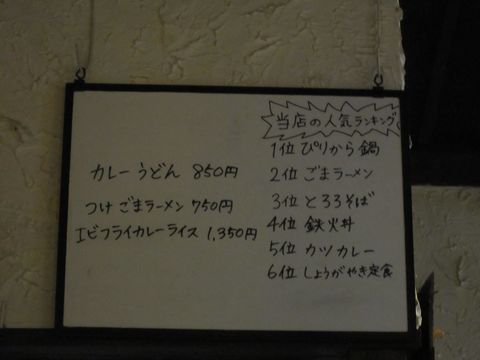 カレーうどん 850円
つけごまラーメン 750円
エビフライカレーライス 1,350円
当店の人気ランキング
1位 ぴりから鍋
2位 ごまラーメン
3位 とろろそば
4位 鉄火丼
5位 カツカレー
6位 しょうがやき定食